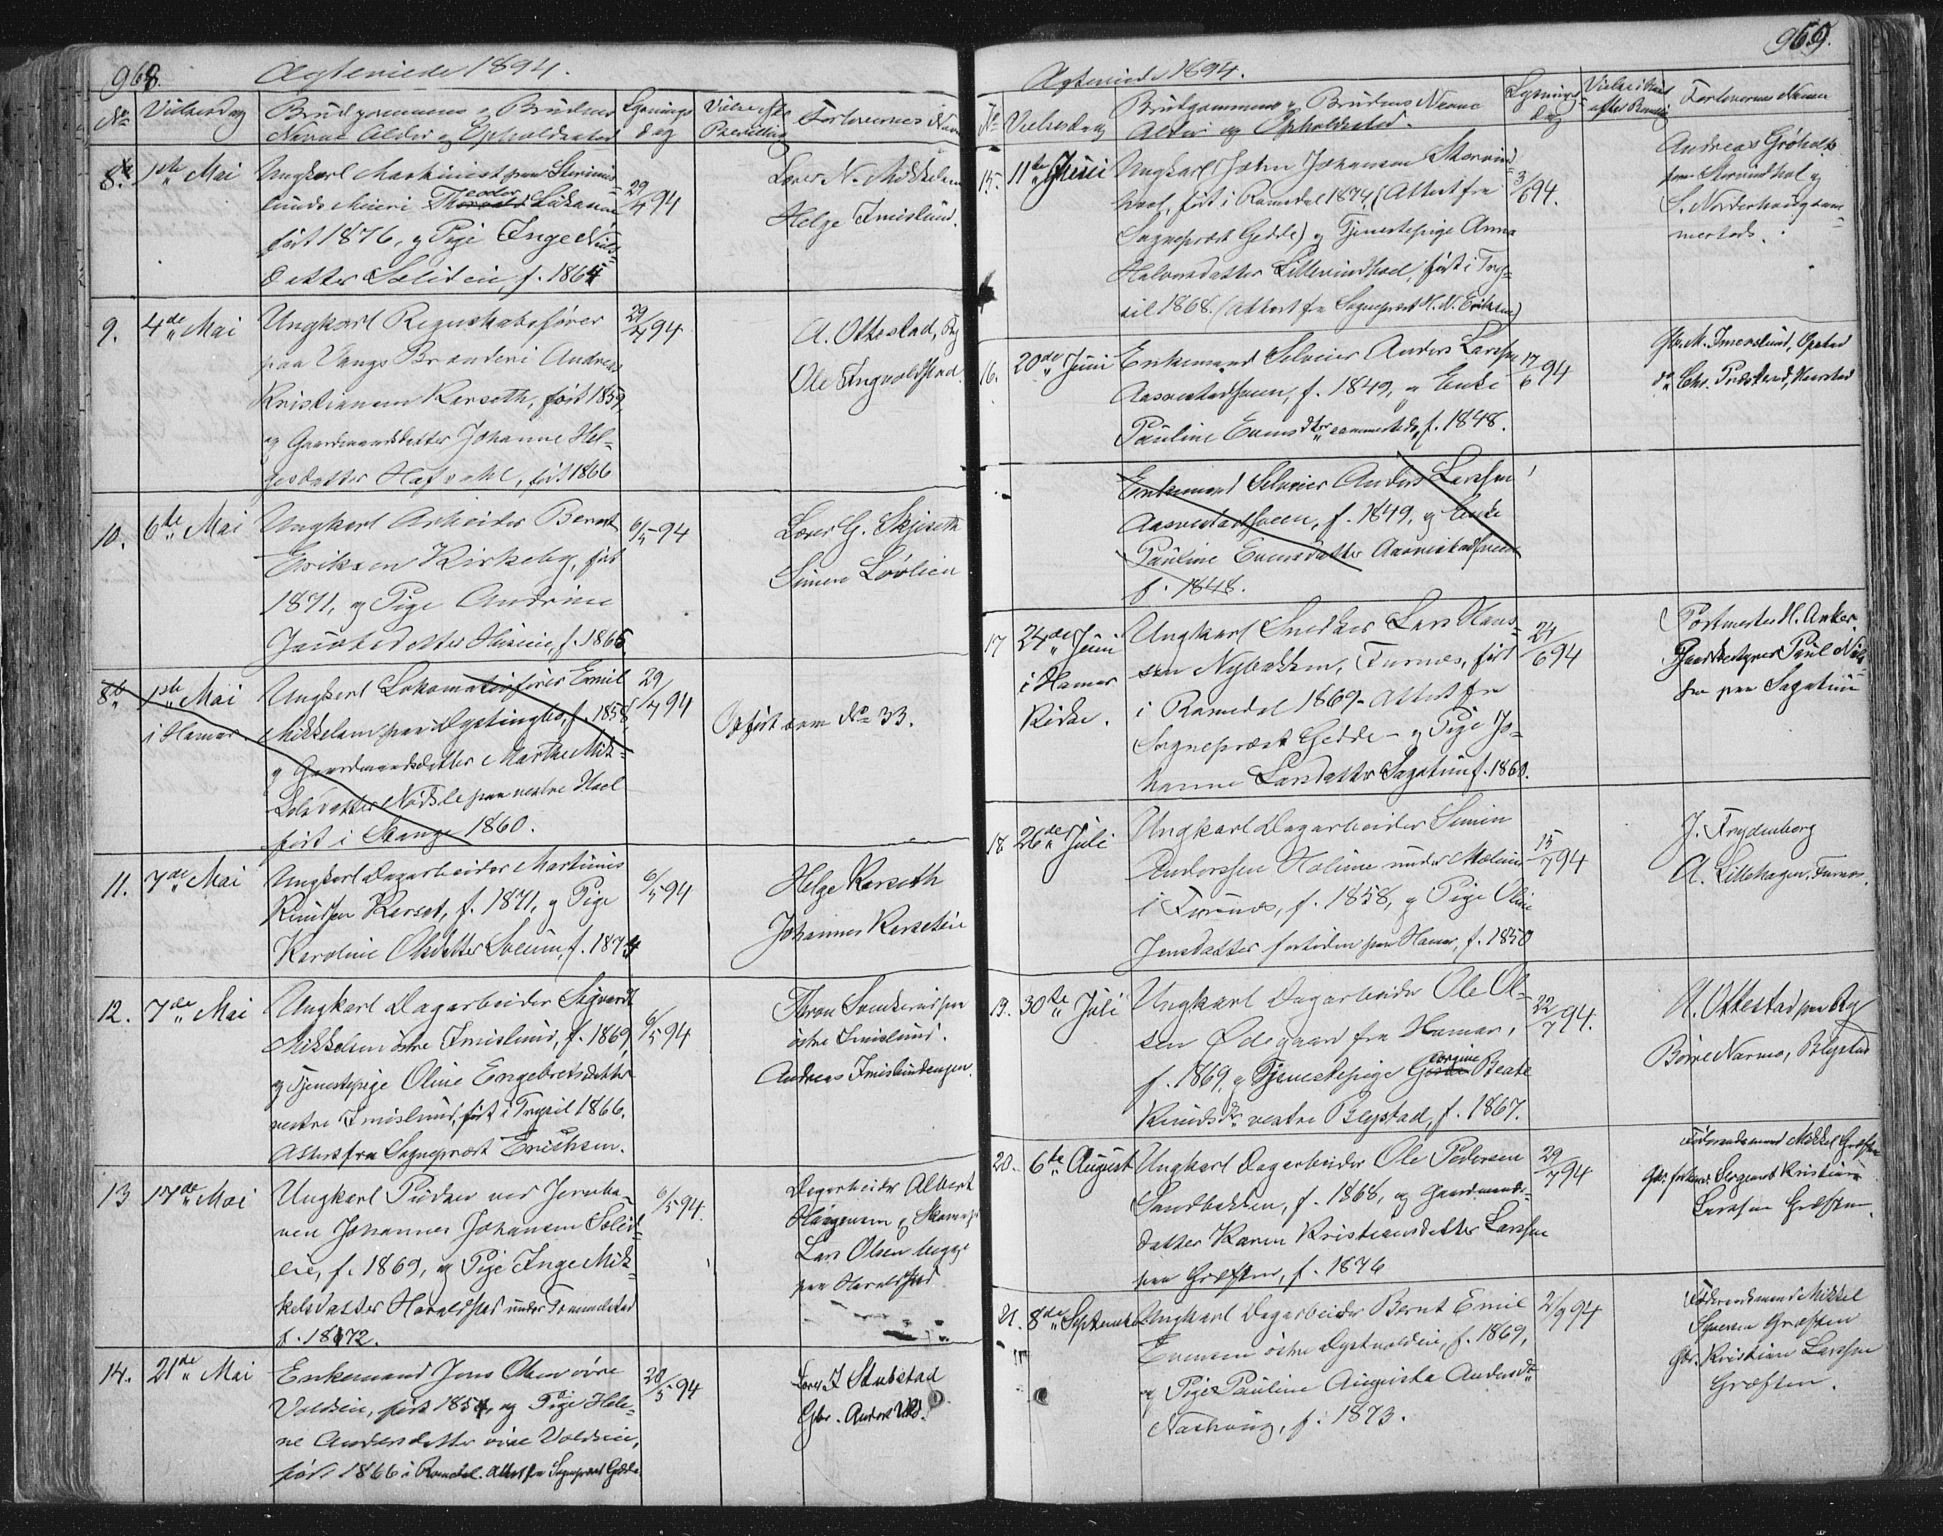 968.
Ægteviede 1894.
No Vielsesdag Brudgommens og Brudens Navne Alder og Opholdssted Lysnings Dag Vielse efter Bevilling Forlovernes Navne
8. 1ste Mai Ungkarl Maskinist paa
lunds Meieri Theodor
født 1876, og Pige Inge Niels-
datter Solilien, f. 1864
29/4 94
Lærer N. Mikkelsen
Helge Imislund.
9. 4de Mai Ungkarl Regnskabsfører
paa Vangs Brænderi Andreas
Kristiansen Korseth, født 1859,
og Gaardmandsdatter Johanne Hel-
gesdatter Hafvahl, født 1866
29/4 94
A. Ottestad, By
Ole Ingvoldstad.
10. 6te Mai Ungkarl Arbeider Bernt
Eriksen Kirkeby, født
1871, og Pige Andrine
Jacobsdatter f. 186
6/5 94
Lærer G. Skjeseth
Simen Løvlien
8b 1ste Mai
i Hamar.
Ungkarl Lokomotivfører Emil
Mikkelsen paa Dystingbo, f. 1858,
og Gaardmandsdatter Marthe Mik-
kelsdatter paa vestre Hael
født i Stange 1860.
29/4 94
Opført som No 33.
11. 7de Mai Ungkarl Dagarbeider Martinus
Knudsen Korset, f. 1871, og Pige
Karoline Olsdatter Solium, f. 1874
6/5 94
Helge Korseth
Johannes Korseteie
12. 7de Mai Ungkarl Dagarbeider Sigvard
Mikkelsen østre Imislund, f. 1869,
og Tjenestepige Oline Engebretsdatter
vestre Imislund, født i Trysil 1866.
Attest fra Sognepræst Erichsen.
6/5 94
Thron
østre Imislund.
Andreas Imislundengen.
13 17de Mai Ungkarl Pudser ved Jernba-
nen Johannes Johansen Solid-
eie, f. 1869, og Pige Inge Mik-
kelsdatter Haraldstad under Tommelstad
f. 1872.
6/5 94.
Dagarbeider Albert
Haagensen og
Lars Olsen begge
paa Haraldstad
14. 21de Mai Enkemand Jens Olsen øvre
Voldeie, født 1854, og Pige Hele-
ne Andersdatter øvre Voldeie,
født 1866 i Romedal. Attest fra Sognepræst Gedde
20/5 94
Lærer I. Stubstad
Gbr. Andreas
969.
Ægteviede 1894.
No Vielsesdag Brudgommens og Brudens Navne
Alder og Opholdssted. Lysnings Dag Vielse i Huset efter Bevilling Forlovernes Navne
15. 11te Juni Ungkarl John Johansen
født i Romedal 1874 (Attest fra
Sognepræst Gedde) og Tjenestepige Anna
Halvorsdatter født i Try-
sil 1868. (Attest fra Sognepræst H. N. Eriksen)
3/6 94.
Andreas Grøholt
S. Nordenhaug sam-
mesteds.
16. 20de Juni Enkemand Selveier Anders Larsen
Aasvestadsveen, f. 1849, og Enke
Pauline Evensdtr sammesteds, f. 1848.
17/6 94
Gbr. M. Imerslund, Opsad
do Chr.
Enkemand Selveier Anders Larsen
Aasvestadsveen, f. 1849, og Enke
Pauline Evensdatter Aasvestadsveen
f. 1848.
17 24de Juni
i Hamar
Kirke.
Ungkarl Snedker Lars Han-
sen Nybakken, Furnes, født
i Romedal 1869. Attest fra
Sognepræst Gedde og Pige Jo-
hanne Larsdatter Sagatun f. 1860.
24/6 94
Postmester H. Anker
Gaardbestyrer Paul
paa Sagatun
18 26de Juli Ungkarl Dagarbeider Simen
Anderssen Holime under Mælum
i Furnes, f. 1858, og Pige Oline
Jensdatter fortiden paa Hamar, f. 1850
15/7 94
J. Frydenborg
A. Lillehagen, Furnes.
19. 30te Juli Ungkarl Dagarbeider Ole Ol-
sen Ødegaard fra Hamar,
f. 1869, og Tjenestepige Georgine Beate
Knudsdr vestre Blystad, f. 1867.
22/7 94.
A. Ottestad paa By
Blystad
20. 6te August Ungkarl Dagarbeider Ole Pedersen
Sandbakken, f. 1868, og Gaardmands-
datter Karen Kristiansdatter Larssen
paa Græften, f. 1876
29/7 94
Føderaadsmand Mikkel Græften
Gbr. forhenv. Sergeant Kristian
Larssen Græften.
21. 8de September Ungkarl Dagarbeider Bernt Emil
Evensen østre f. 1869,
og Pige Pauline Augusta Andersdr
f. 1873.
2/9 94
Føderaadsmand Mikkel
Græften
Gbr. Kristian Larssen
Græften.